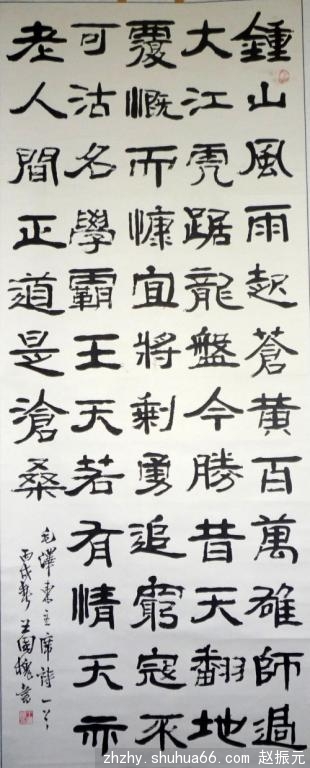 鍾山風雨起蒼黄百萬雄師過
大江虎踞龍盤今勝昔天翻地
覆慨而慷宜將剩勇追窮寇不
可沽名學霸王天若有情天亦
老人間正道是滄桑
毛澤東主席詩一首
丙戌
zhzhy.shuhua66.com 赵振元